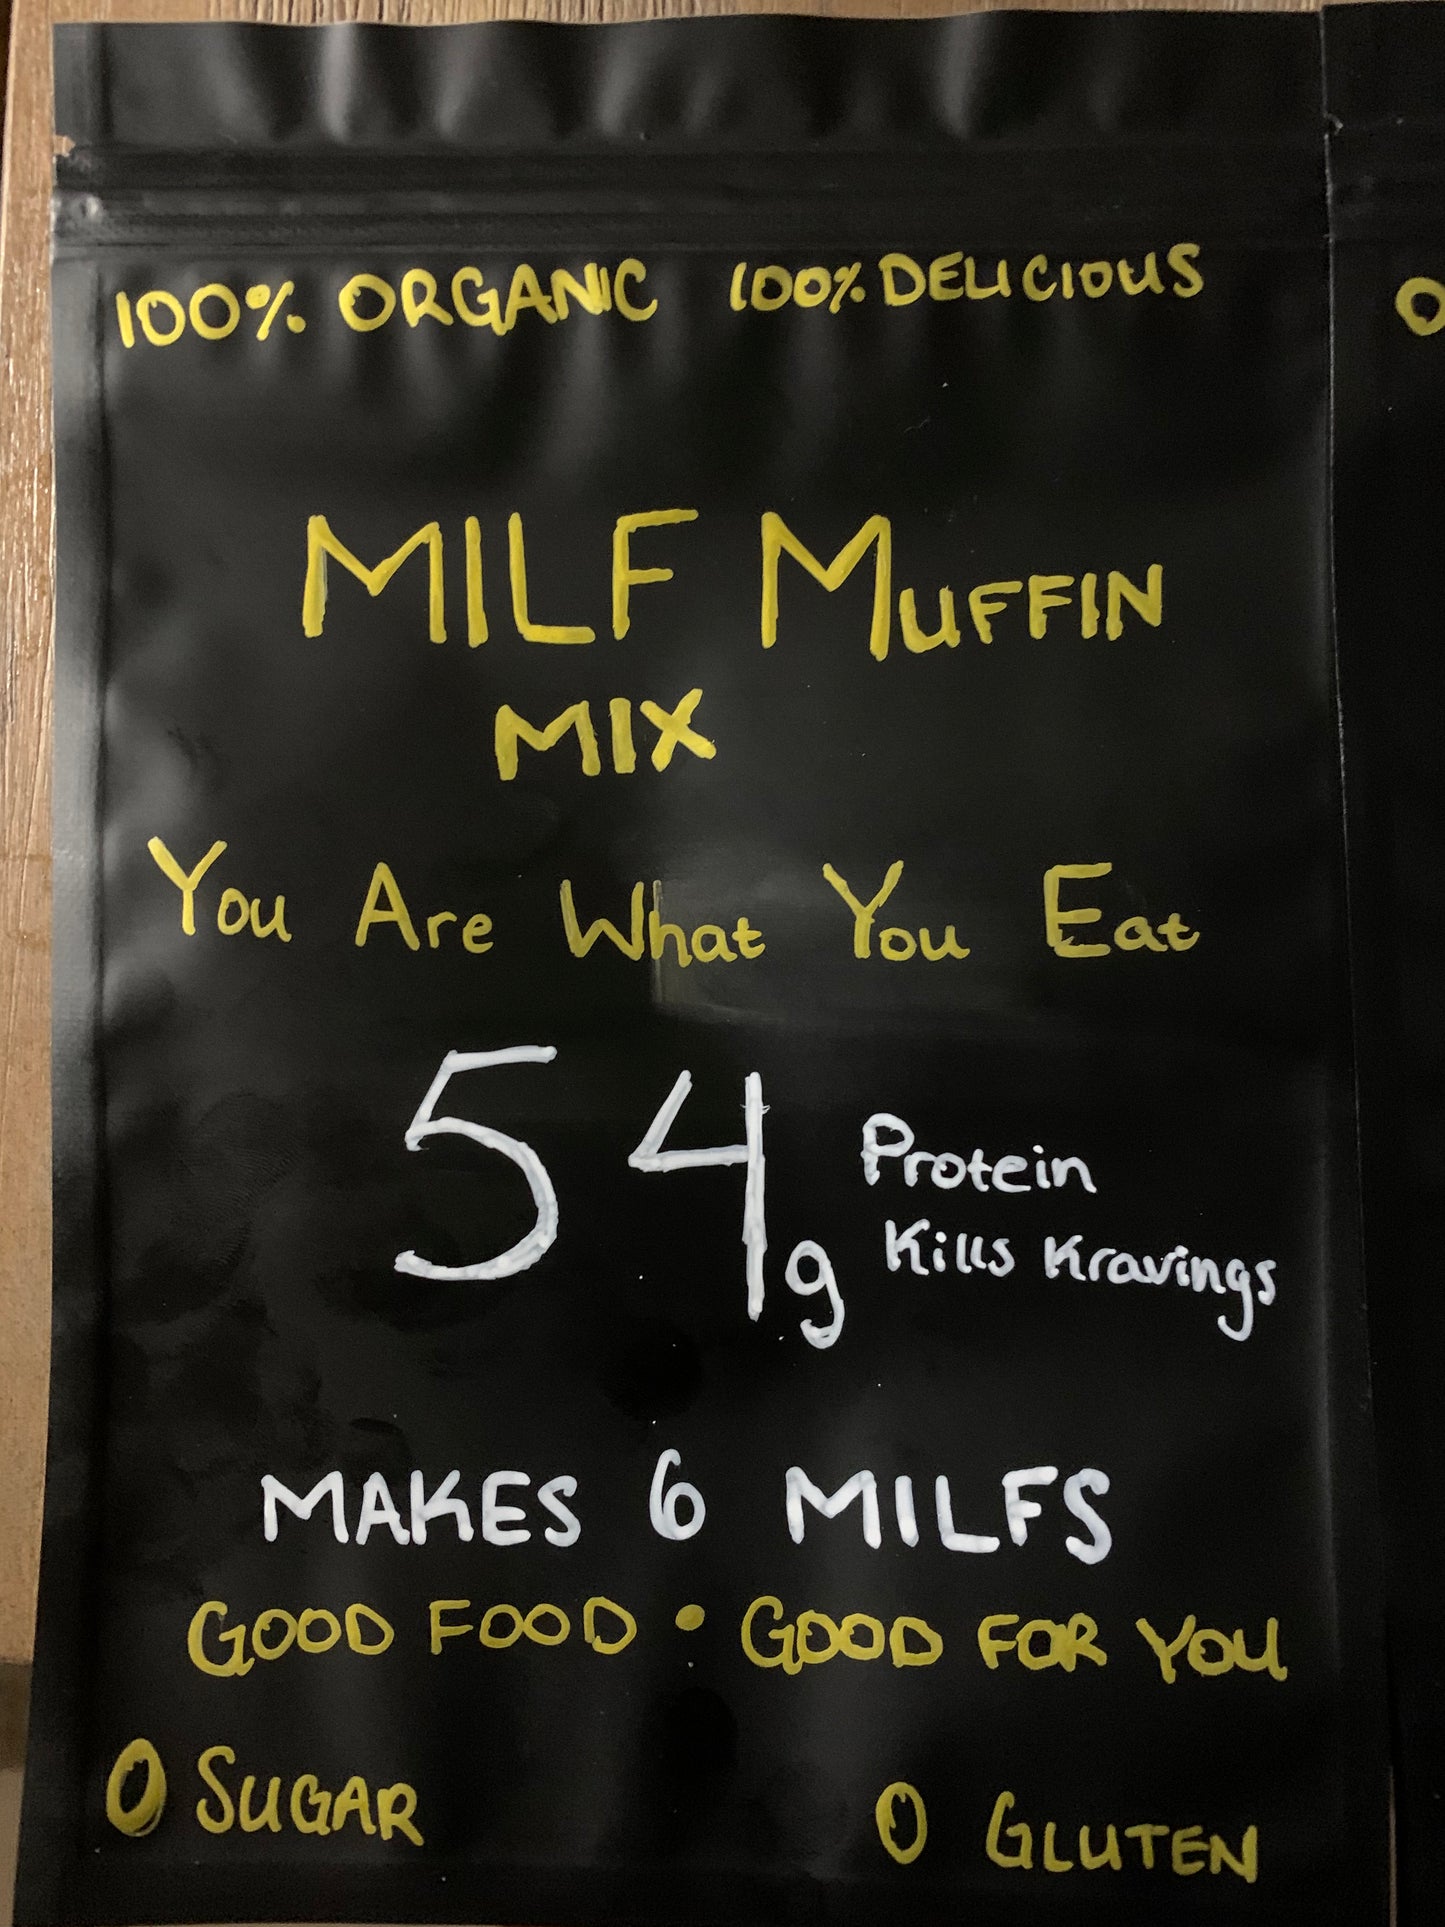 100% ORGANIC 100% DELICIOUS
MILF MUFFIN
MIX
You Are What You Eat
54g Protein
Kills Kravings
MAKES 6 MILFS
GOOD FOOD • GOOD FOR YOU
0 SUGAR 0 GLUTEN